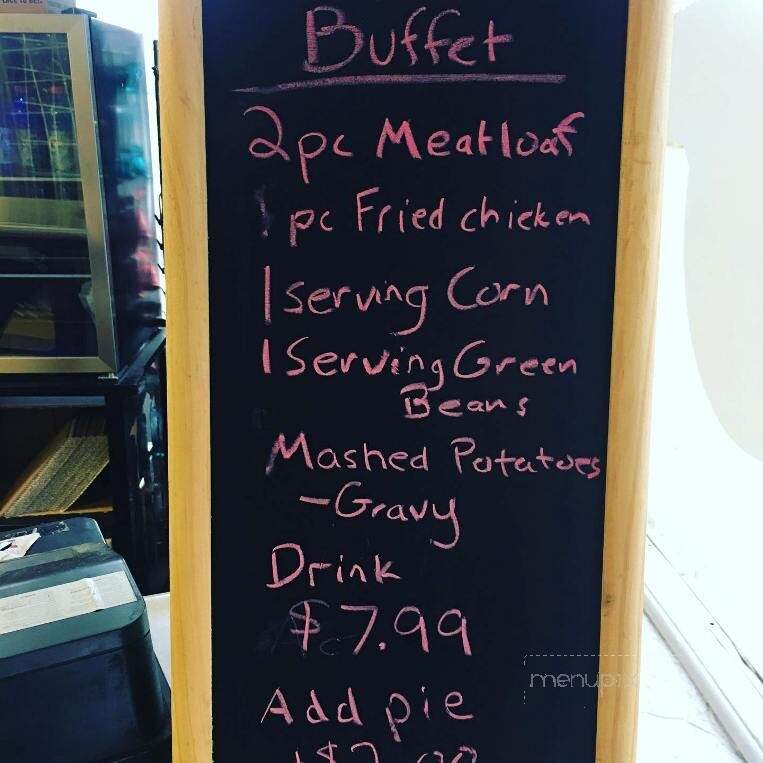 Buffet
2pc Meatloaf
1 pc Fried chicken
1 serving Corn
1 Serving Green
Beans
Mashed Potatoes
- Gravy
Drink
$7.99
Add pie